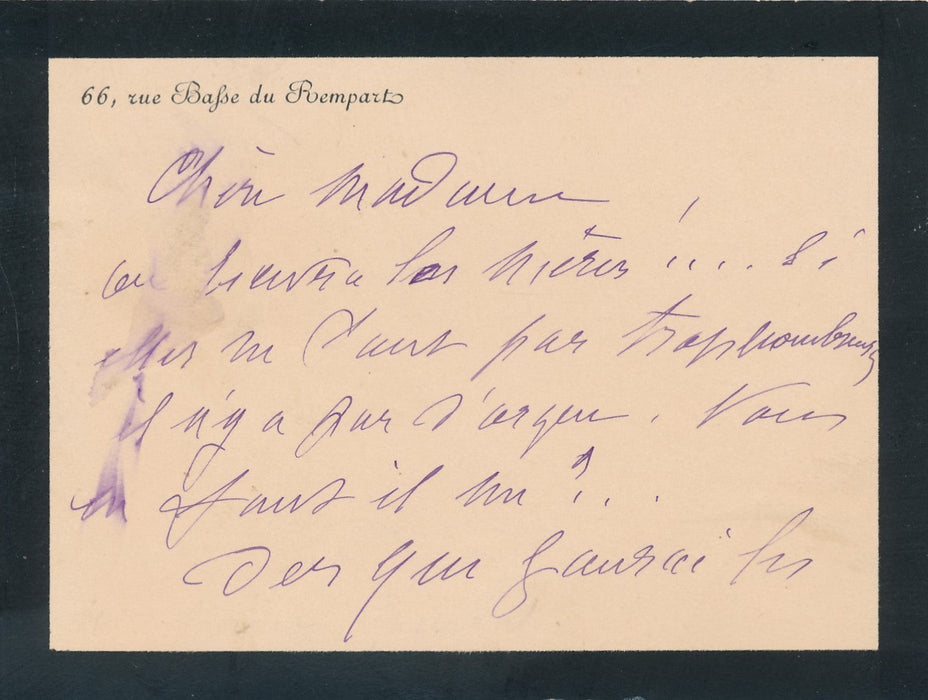 66, rue Basse du Rempart
Chère Madame
on trouvera les nièces !... Si
elles ne sont pas trop nombreuses
il n'y a pas d'orgue. Vous
en faut il un ?...
Des que j'aurai les